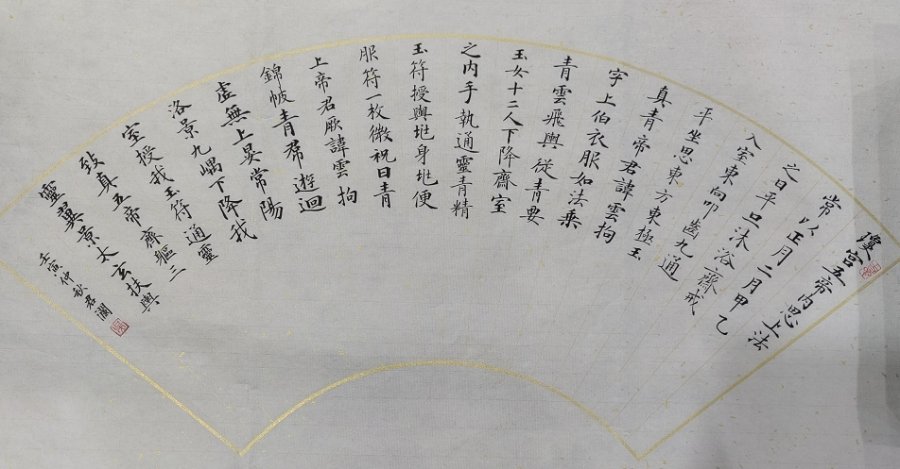 瓊宮五帝內思上法
常以正月二月甲乙
之日平旦沐浴齋戒
入室東向叩齒九通
平坐思東方東極玉
真青帝君諱雲拘
字上伯衣服如法乘
青雲飛輿從青要
玉女十二人下降齋室
之內手執通靈青精
玉符授與地身地便
服符一枚微祝曰青
上帝君厥諱雲拘
錦帔青帬遊迴
虛無上吴常陽
洛景九嵎下降我
室授我玉符通靈
致真五帝齊軀三
靈翼景太玄扶輿
壬寅仲秋君瀾